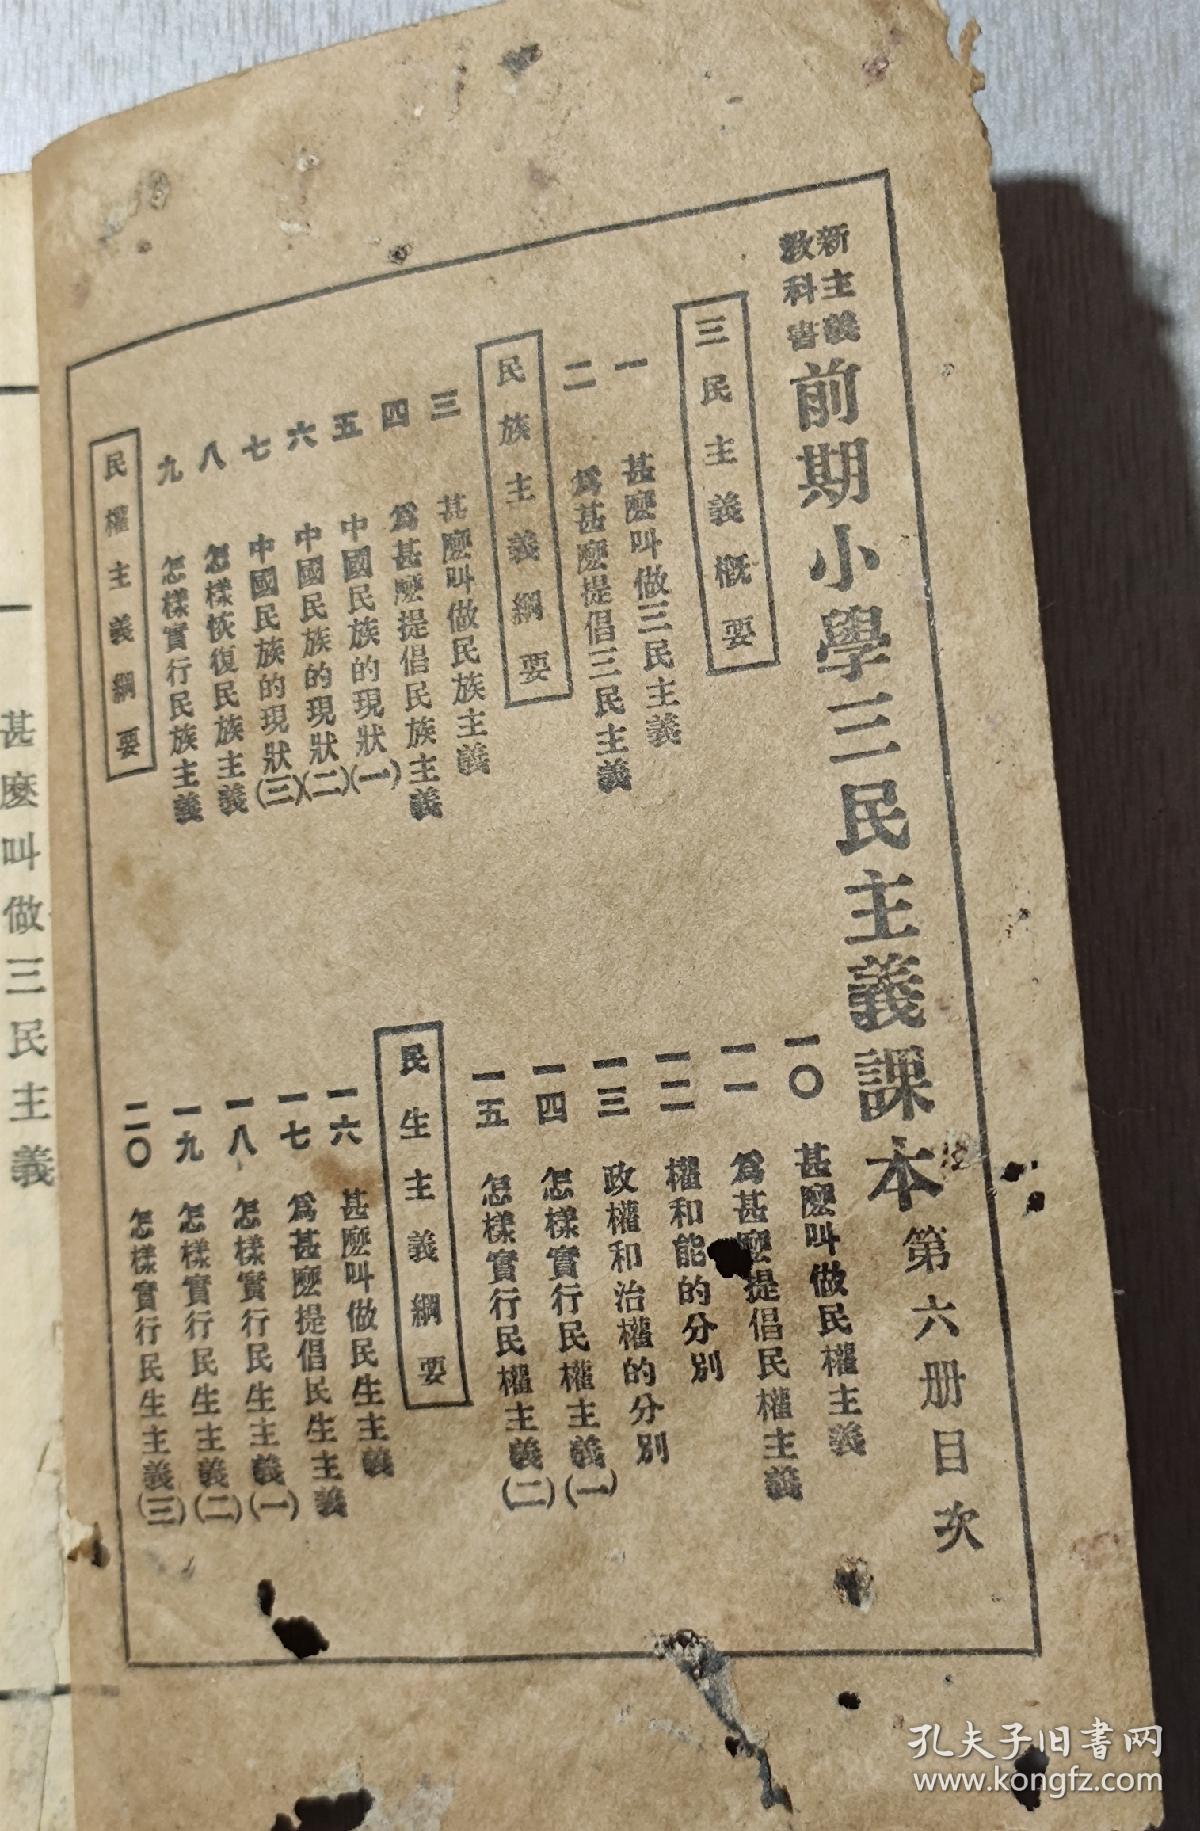 新主義
教科書
前期小學三民主義課本第六册目次
三民主義概要
一 甚麽叫做三民主義
二 爲甚麽提倡三民主義
民族主義綱要
三 甚麽叫做民族主義
四 爲甚麽提倡民族主義
五 中國民族的現狀(一)
六 中國民族的現狀(二)
七 中國民族的現狀(三)
八 怎樣恢復民族主義
九 怎樣實行民族主義
民權主義綱要
一〇 甚麽叫做民權主義
一一 爲甚麽提倡民權主義
一二 權和能的分別
一三 政權和治權的分別
一四 怎樣實行民權主義(一)
一五 怎樣實行民權主義(二)
民生主義綱要
一六 甚麽叫做民生主義
一七 爲甚麽提倡民生主義
一八 怎樣實行民生主義(一)
一九 怎樣實行民生主義(二)
二〇 怎樣實行民生主義(三)
一 甚麽叫做三民主義
孔夫子旧书网
www.kongfz.com